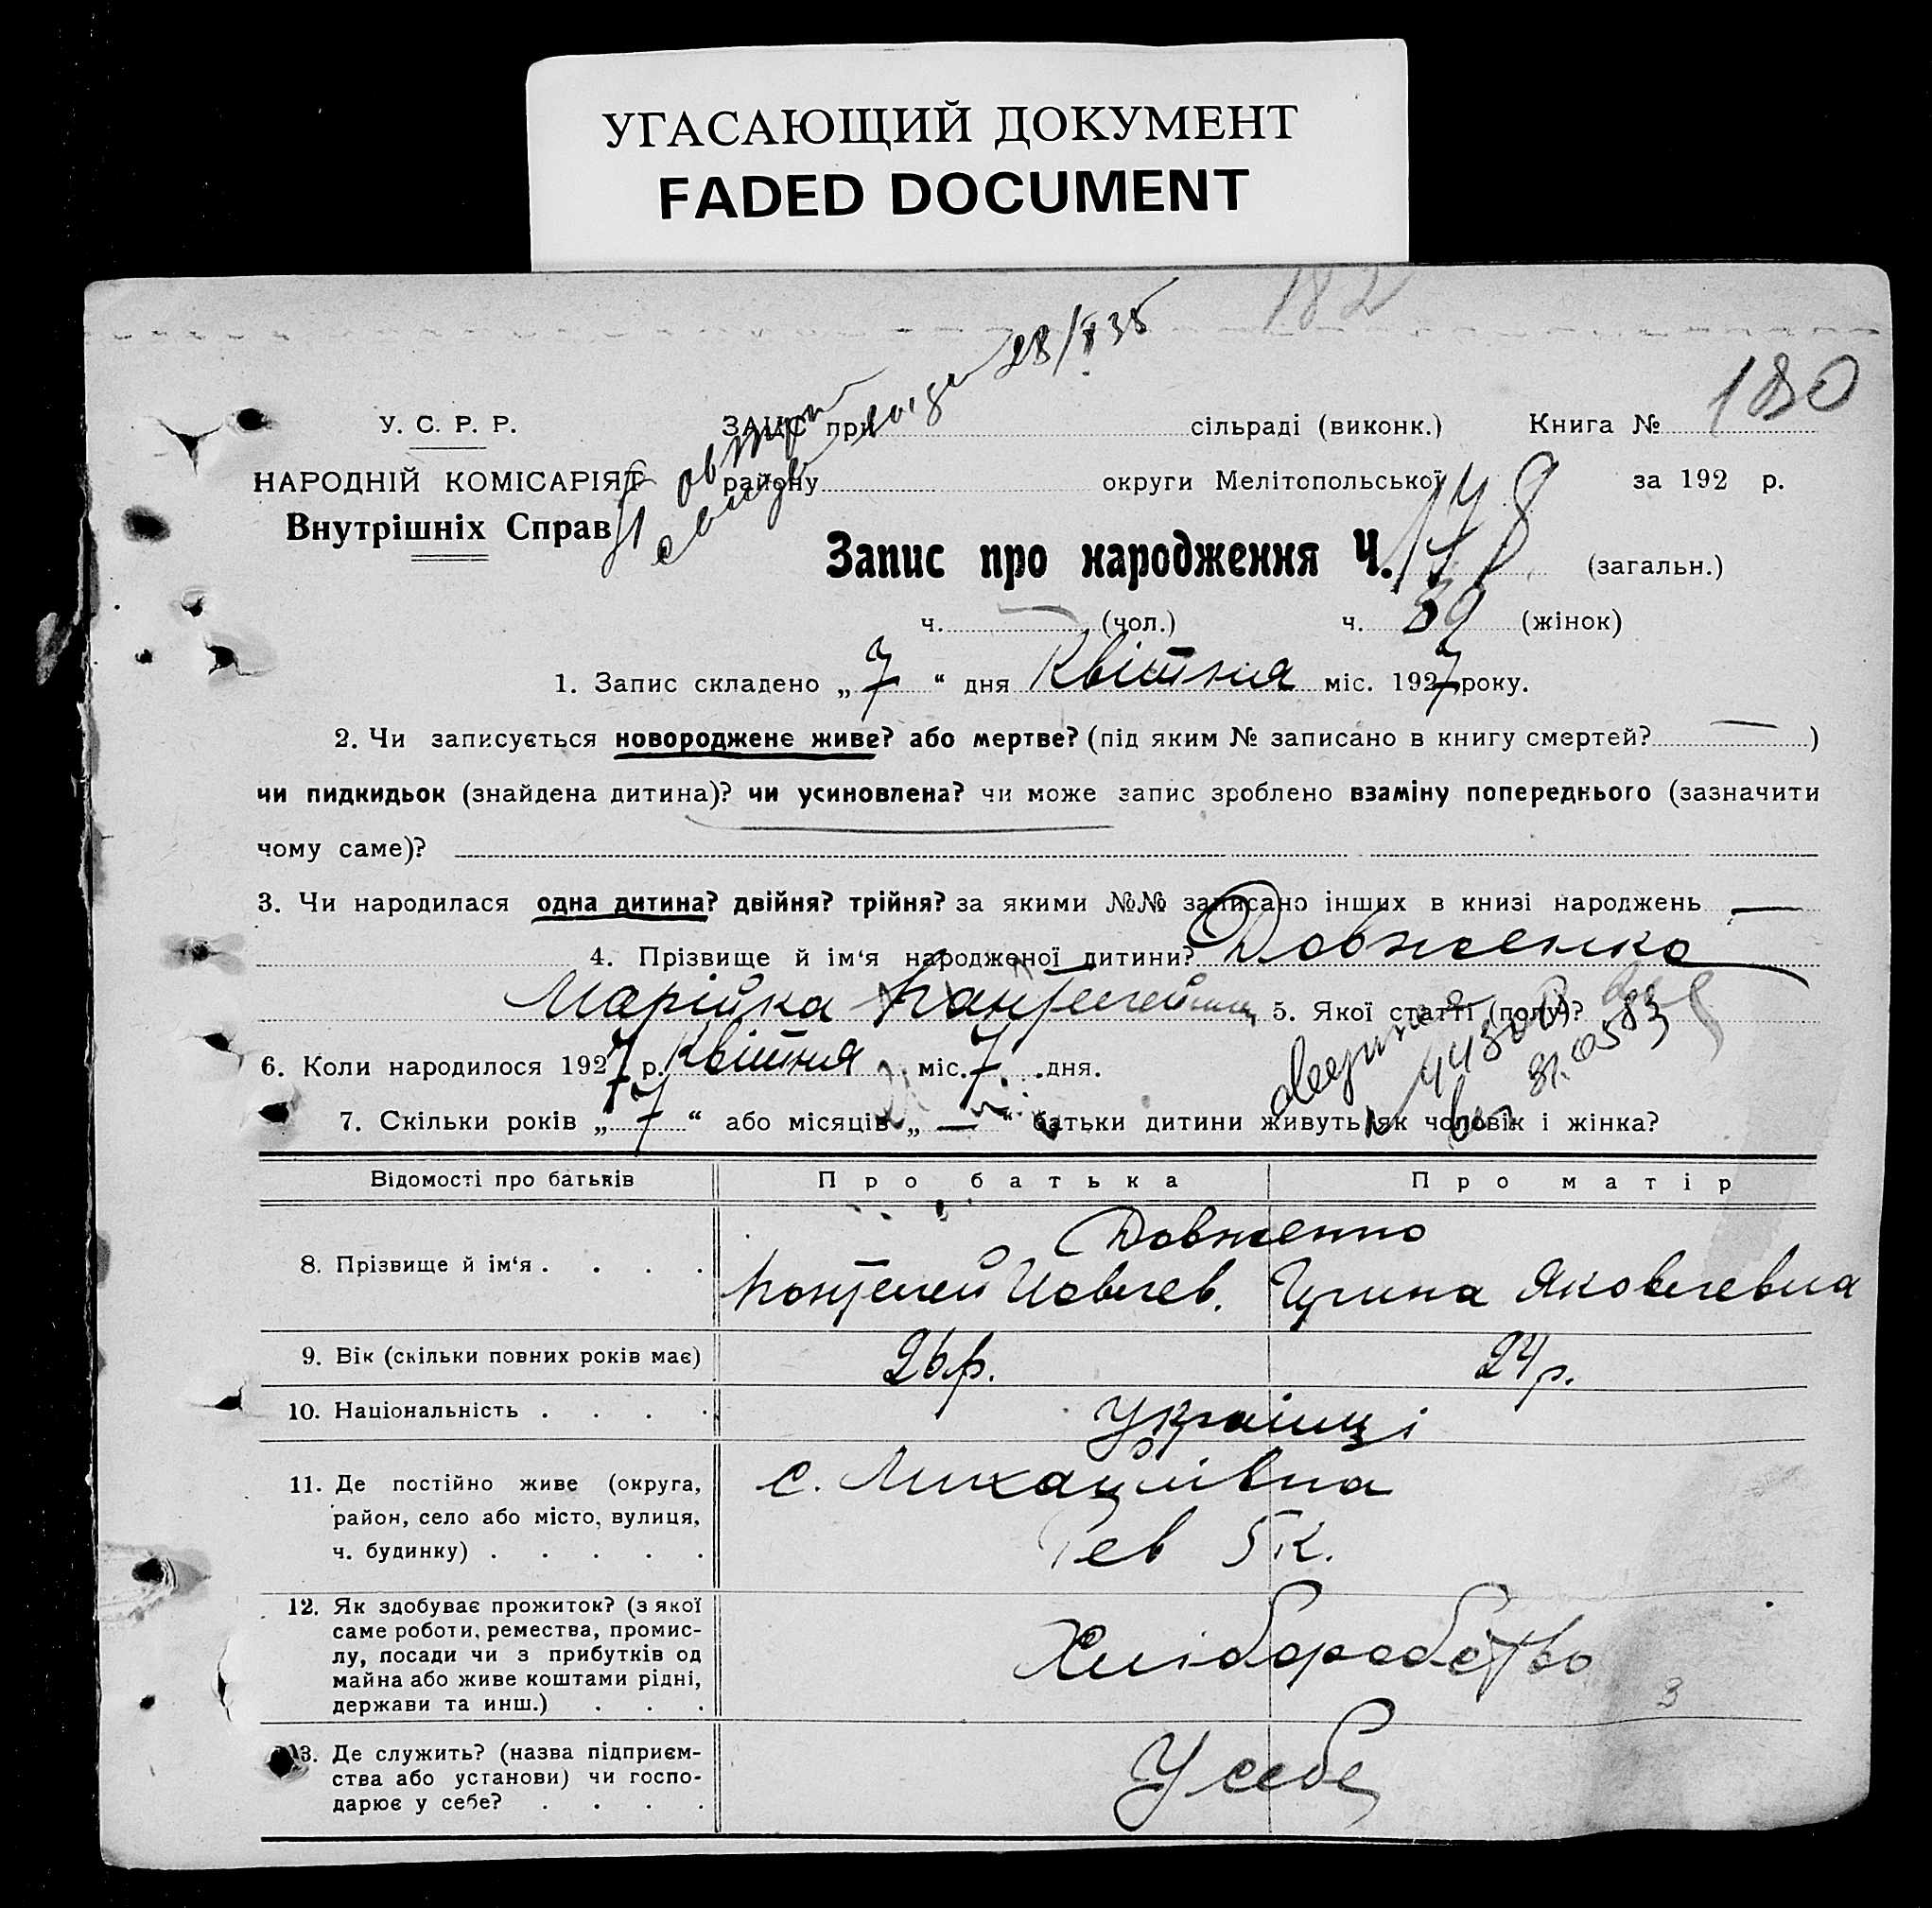 УГАСАЮЩИЙ ДОКУМЕНТ
FADED DOCUMENT
182
28/V 35
180
У. С. Р. Р.
ЗАЦС при сільраді (виконк.) Книга №
НАРОДНІЙ КОМІСАРІЯТ
району округи Мелітопольської за 192 р.
Внутрішніх Справ
Запис про народження Ч. 178 (загальн.)
ч. — (чол.) ч. 39 (жінок)
1. Запис складено „ 7 “ дня Квітня міс. 1927 року.
2. Чи записується новороджене живе? або мертве? (під яким № записано в книгу смертей? — )
чи пидкидьок (знайдена дитина)? чи усиновлена? чи може запис зроблено взаміну попереднього (зазначити
чому саме)?
3. Чи народилася одна дитина? двійня? трійня? за якими №№ записано інших в книзі народжень —
4. Прізвище й ім‘я народженої дитини? Довженко
Марійка 5. Якої статті (полу)?
6. Коли народилося 1927 р. Квітня міс. 7 дня.
7. Скільки років „ 7 “ або місяців „ — “ батьки дитини живуть як чоловік і жінка?
Відомості про батьків Про батька Про матір
Довженко
8. Прізвище й ім‘я . . . . Понтелей Иовлев. Гугина Яковлевна
9. Вік (скільки повних років має) 26 р. 24 р.
10. Національність . . . . Українці
11. Де постійно живе (округа, с. Михайлівка
район, село або місто, вулиця,
ч. будинку) . . . . . Рев 5 к.
12. Як здобуває прожиток? (з якої
саме роботи, ремества, промис-
лу, посади чи з прибутків од Хліборобство
майна або живе коштами рідні,
держави та инш.) . . . 3
13. Де служить? (назва підприєм-
ства або установи) чи госпо- У себе
дарює у себе? . . . .